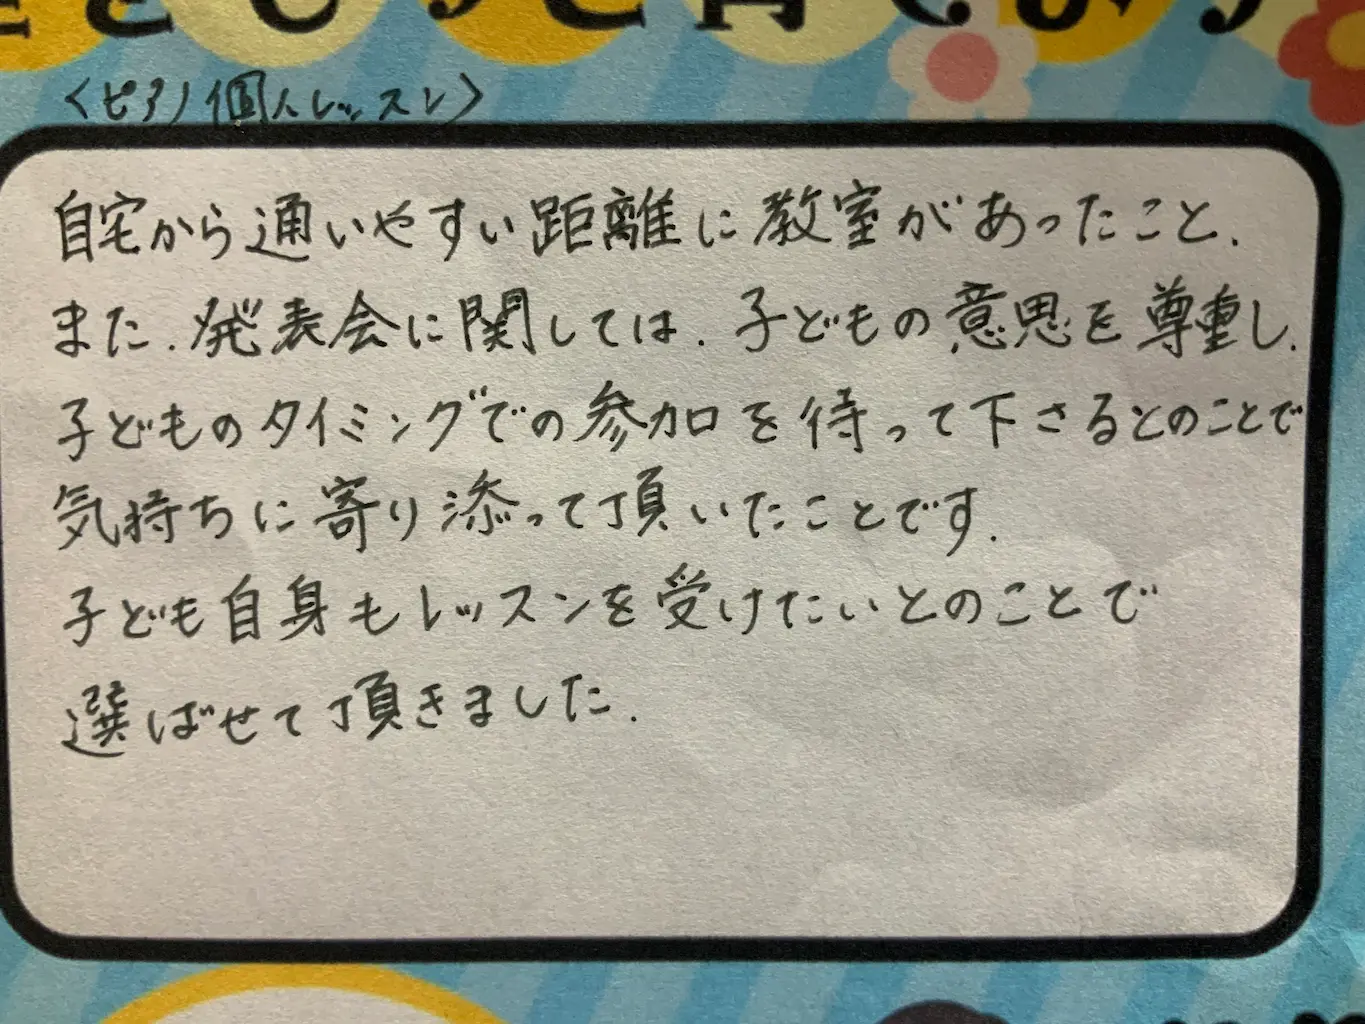 <ピアノ個人レッスン>
自宅から通いやすい距離に教室があったこと.
また.発表会に関しては.子どもの意思を尊重し.
子どものタイミングでの参加を待って下さるとのことで
気持ちに寄り添って頂いたことです.
子ども自身もレッスンを受けたいとのことで
選ばせて頂きました.